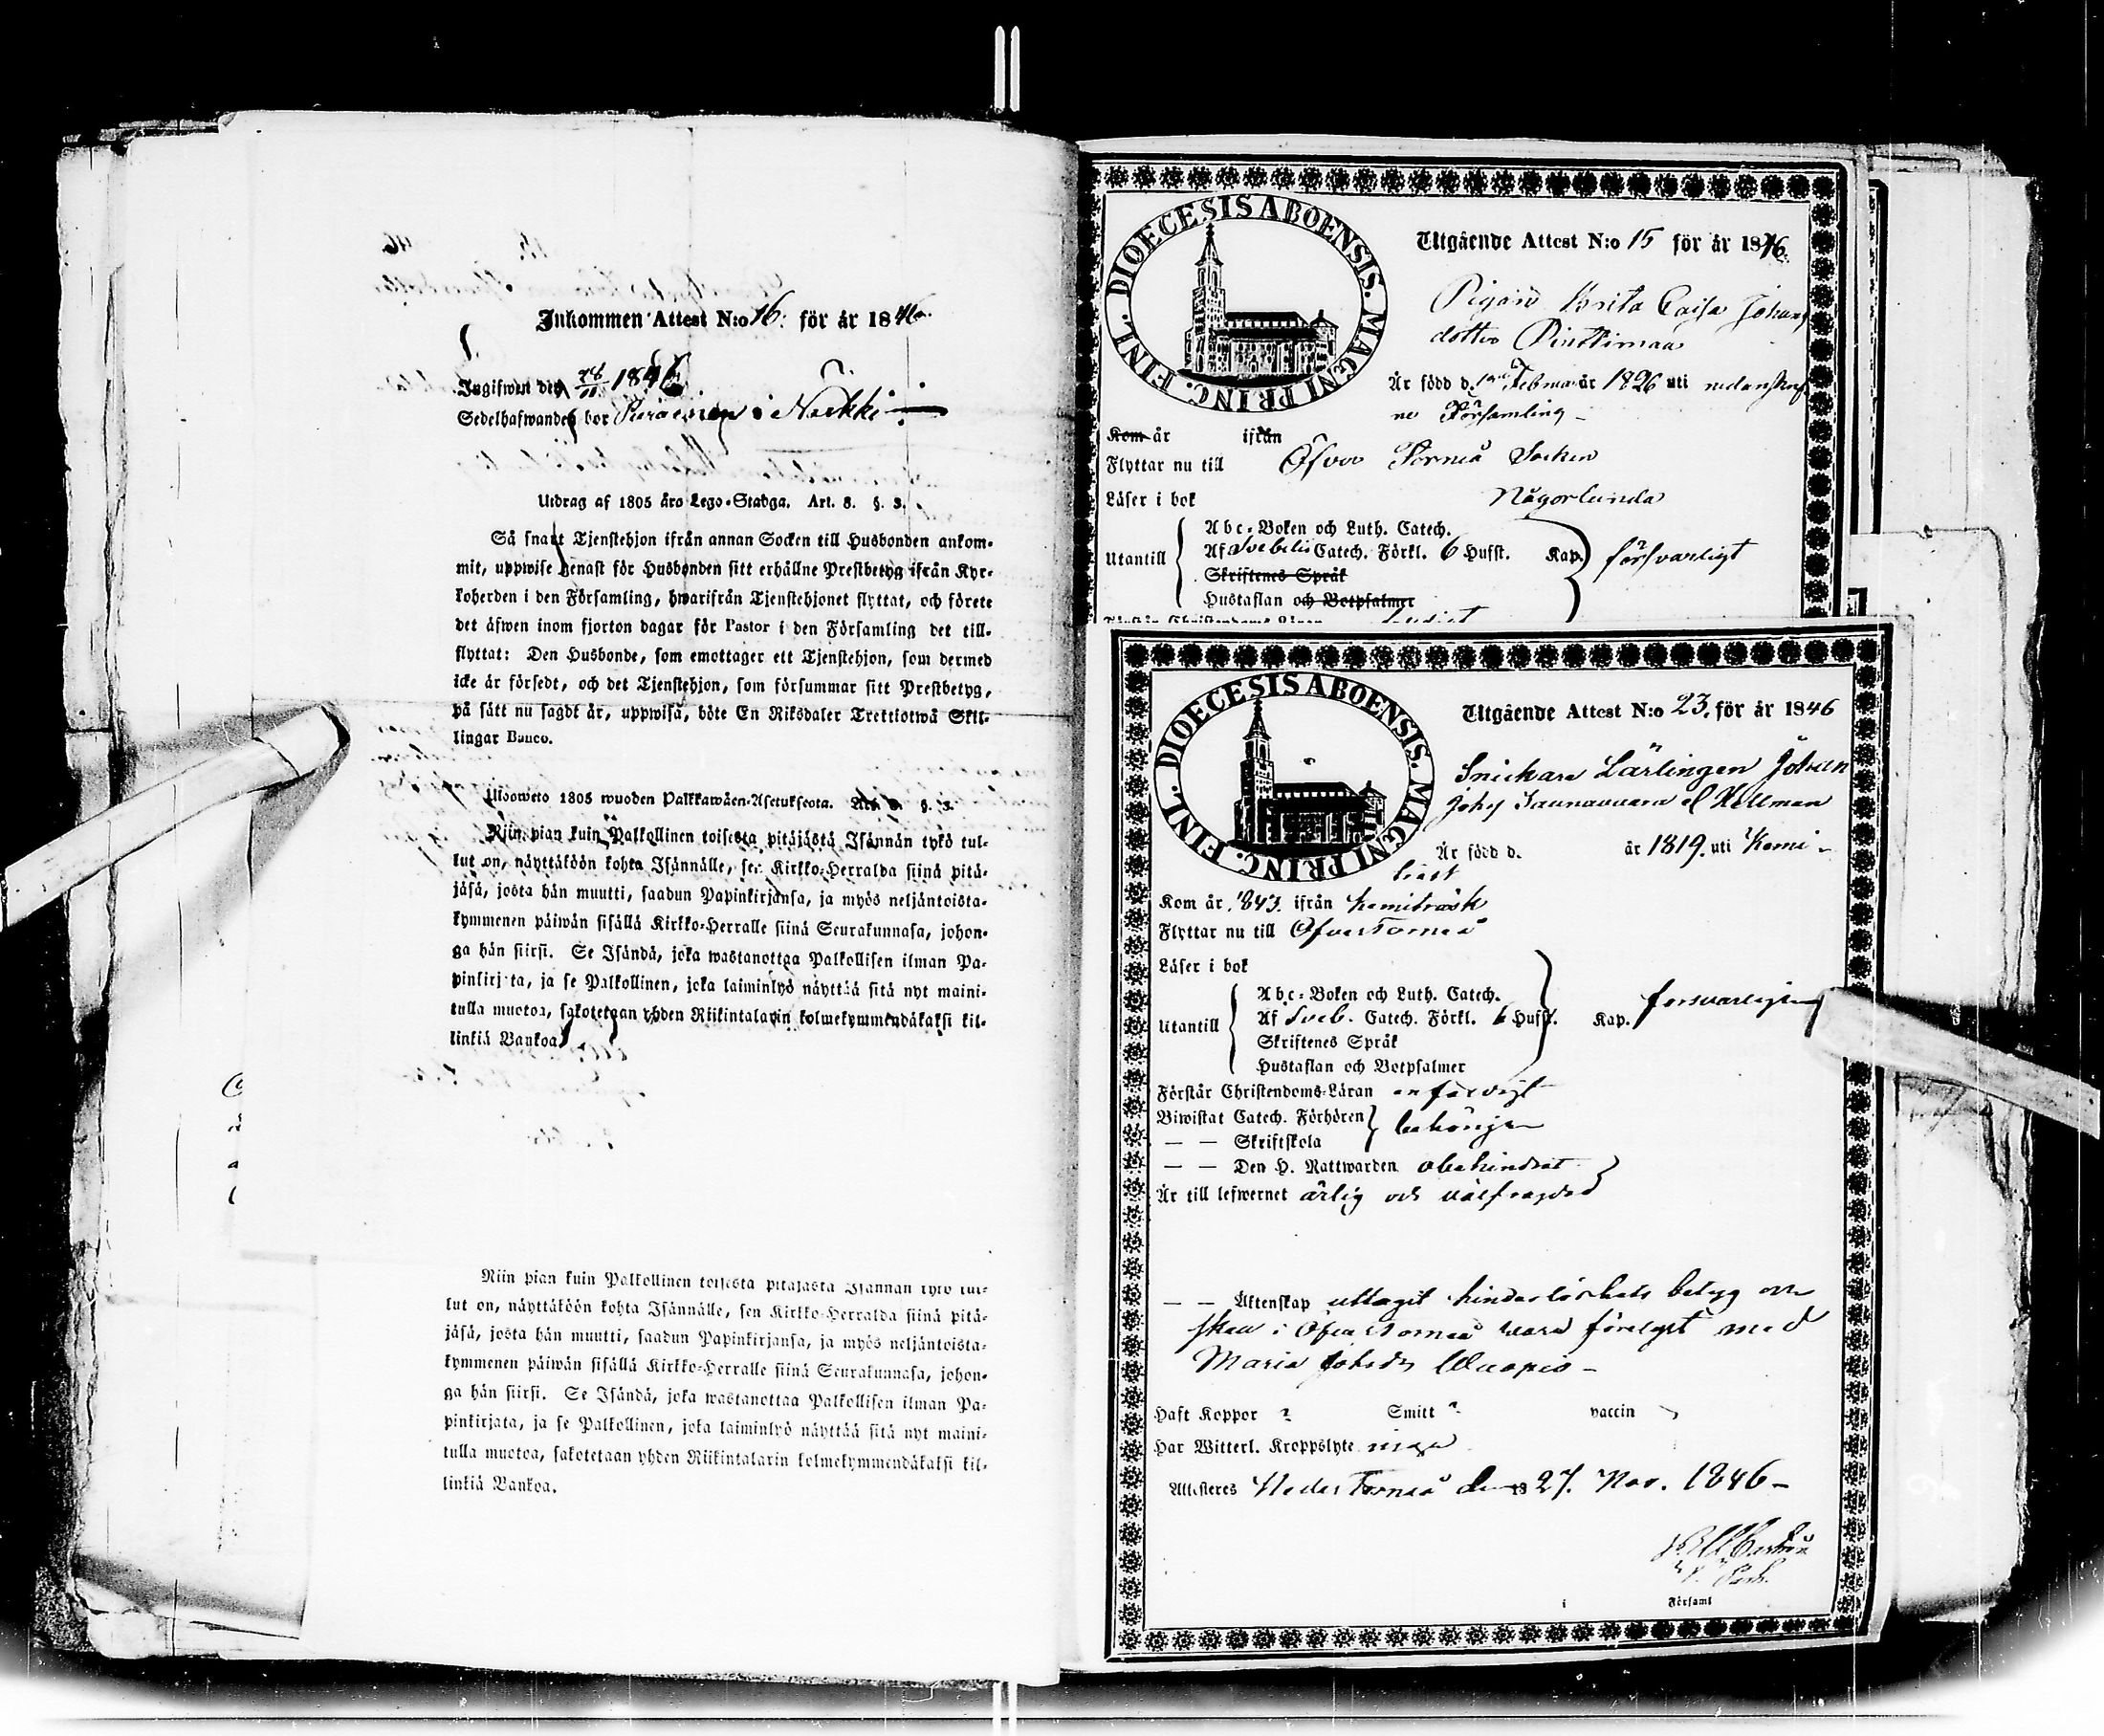 Inkommen Attest N:o 16. för år 1846.
Ingifwen den 28/11 1846
Sedelhafwanden bor i Närkki
Utdrag af 1805 års Lego-Stadga. Art. 8. §. 3.
Så snart Tjenstehjon ifrån annan Socken till Husbonden ankom-
mit, uppwise genast för Husbonden sitt erhållne Prestbetyg ifrån Kyr-
koherden i den Församling, hwarifrån Tjenstehjonet flyttat, och förete
det äfwen inom fjorton dagar för Pastor i den Församling det till-
flyttat: Den Husbonde, som emottager ett Tjenstehjon, som dermed
icke är försedt, och det Tjenstehjon, som försummar sitt Prestbetyg,
på sätt nu sagdt är, uppwisa, böte En Riksdaler Trettiotwå Skil-
lingar Banco.
Ulosweto 1805 wuoden Palkkawäen-Asetuksesta. Art. 8. §. 3.
Niin pian kuin Palkollinen toisesta pitäjästä Isännän tykö tul-
lut on, näyttäköön kohta Isännälle, sen Kirkko-Herralda siinä pitä-
jäsä, josta hän muutti, saadun Papinkirjansa, ja myös neljäntoista-
kymmenen päiwän sisällä Kirkko-Herralle siinä Seurakunnasa, johon-
ga hän siirsi. Se Isändä, joka wastanottaa Palkollisen ilman Pa-
pinkirjata, ja se Palkollinen, joka laiminlyö näyttää sitä nyt maini-
tulla muotoa, sakotetaan yhden Riikintalarin kolmekymmendäkaksi kil-
linkiä Bankoa.
Niin pian kuin Palkollinen toisesta pitäjästä Isännän tykö tul-
lut on, näyttäköön kohta Isännälle, sen Kirkko-Herralda siinä pitä-
jäsä, josta hän muutti, saadun Papinkirjansa, ja myös neljäntoista-
kymmenen päiwän sisällä Kirkko-Herralle siinä Seurakunnasa, johon-
ga hän siirsi. Se Isändä, joka wastanottaa Palkollisen ilman Pa-
pinkirjata, ja se Palkollinen, joka laiminlyö näyttää sitä nyt maini-
tulla muotoa, sakotetaan yhden Riikintalarin kolmekymmendäkaksi kil-
linkiä Bankoa.
DIOECESIS ABOENSIS. MAGNI PRINC. FINL.
Utgående Attest N:o 15 för år 1846.
Pigan Brita Caisa Johans
dotter
Är född d. Februari år 1826 uti nedanskrif
ne Församling -
Kom år ifrån
Flyttar nu till Öfver Torneå Socken
Läser i bok Någorlunda
Utantill
Abc-Boken och Luth. Catech.
Af Svebelii Catech. Förkl. 6 Husst. Kap. försvarligt
Skriftenes Språk
Hustaflan och Botpsalmer
DIOECESIS ABOENSIS. MAGNI PRINC. FINL.
Utgående Attest N:o 23. för år 1846
Snickare Lärlingen Johan
Johss Saunavaara el Hellman
Är född d. år 1819. uti Kemi-
träsk
Kom år 1843. ifrån Kemiträsk
Flyttar nu till Öfver Torneå
Läser i bok
Utantill
Abc-Boken och Luth. Catech.
Af Sveb. Catech. Förkl. 6 Husst. Kap. försvarligen
Skriftenes Språk
Hustaflan och Botpsalmer
Förstår Christendoms-Läran enfärdigt
Biwistat Catech. Förhören
— — Skriftskola
— — Den H. Nattwarden obehindrat
Är till lefwernet ärlig och välfrägdad
— — Äktenskap uttagit hinderlöshets betyg och
skall i Öfver Torneå vara förelyst med
Maria Johsdr Wuopio -
Haft Koppor ? Smitt ? vaccin
Har Witterl. Kroppslyte inga
Attesteres Neder Torneå den 27. Nov. 1846 -
Församl